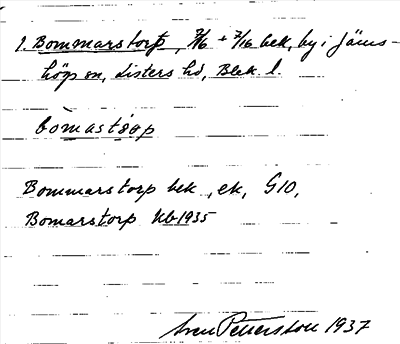 1. Bommarstorp, 7/16 + 7/16 bek, by i Jäms-
högs sn, Listers hd, Blek. l.
bomastɔrp
Bommarstorp bek, ek, G10,
Bomarstorp Nb 1935
Sven Petersson 1937